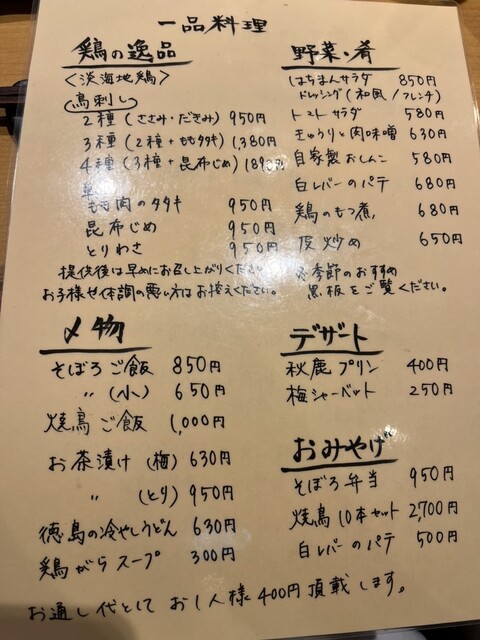 一品料理
鶏の逸品
<淡海地鶏>
鳥刺し
2種(ささみ・だきみ) 950円
3種(2種+ももタタキ) 1,380円
4種(3種+昆布じめ)
もも肉のタタキ 950円
昆布じめ 950円
とりわさ 950円
提供後は早めにお召し上がりください
お子様や体調の悪い方はお控えください。
〆物
そぼろご飯 850円
〃 (小) 650円
焼鳥ご飯 1,000円
お茶漬け(梅) 630円
〃 (とり) 950円
徳島の冷やしうどん 630円
鶏がらスープ 300円
野菜・肴
はちまんサラダ 850円
ドレッシング(和風/フレンチ)
トマトサラダ 580円
きゅうりと肉味噌 630円
自家製おしんこ 580円
白レバーのパテ 680円
鶏のもつ煮 680円
皮炒め 650円
季節のおすすめ
黒板をご覧ください。
デザート
秋鹿プリン 400円
梅シャーベット 250円
おみやげ
そぼろ弁当 950円
焼鳥10本セット 2,700円
白レバーのパテ 500円
お通し代としてお1人様400円頂戴します。